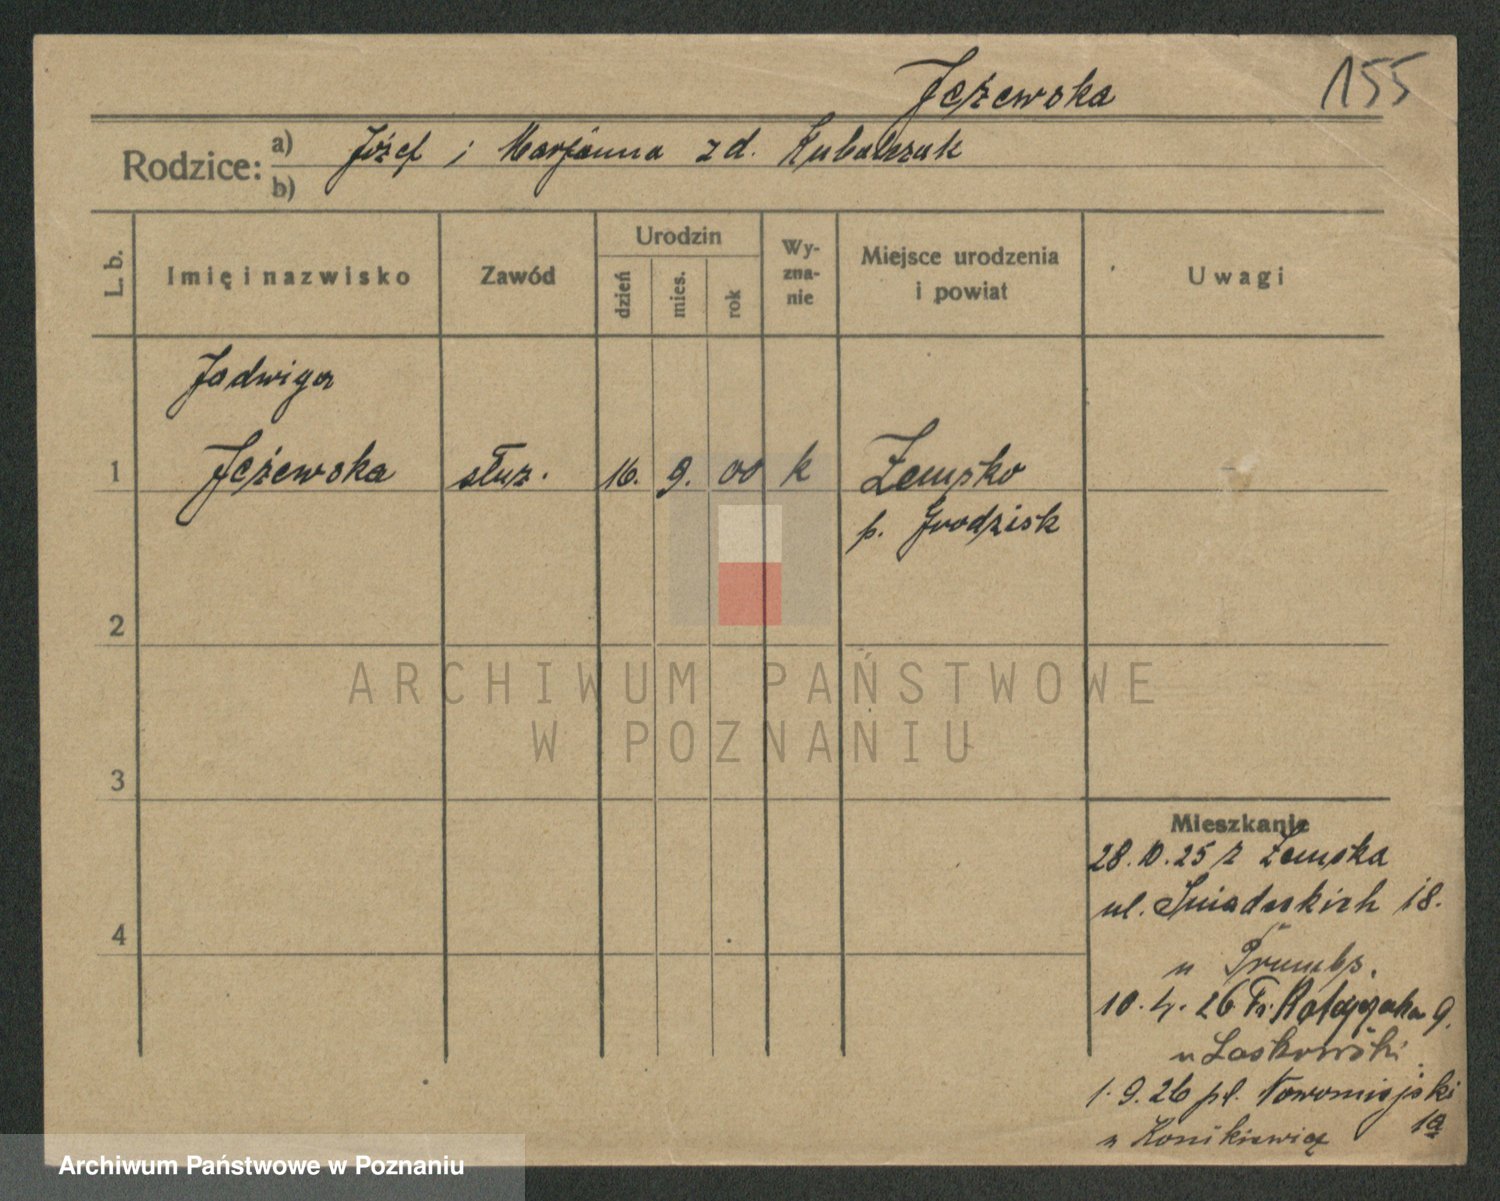 Jeżewska
155
Rodzice: a) Józef i Marjanna z d. Kubalczak
b)
L. b.
Imię i nazwisko
Zawód
Urodzin
dzień
mies.
rok
Wy-
zna-
nie
Miejsce urodzenia
i powiat
Uwagi
Jadwiga
1 Jeżewska służ. 16. 9. 00 k Zemsko
p. Grodzisk
2
3
4
ARCHIWUM PAŃSTWOWE
W POZNANIU
Mieszkanie
28.10.25 z Zemska
ul. Śniadeckich 18.
u
10.4.26 Fr. Ratajczaka 9.
u Laskowski
1.9.26 pl. Nowomiejski
1a
u Konikiewicz
Archiwum Państwowe w Poznaniu